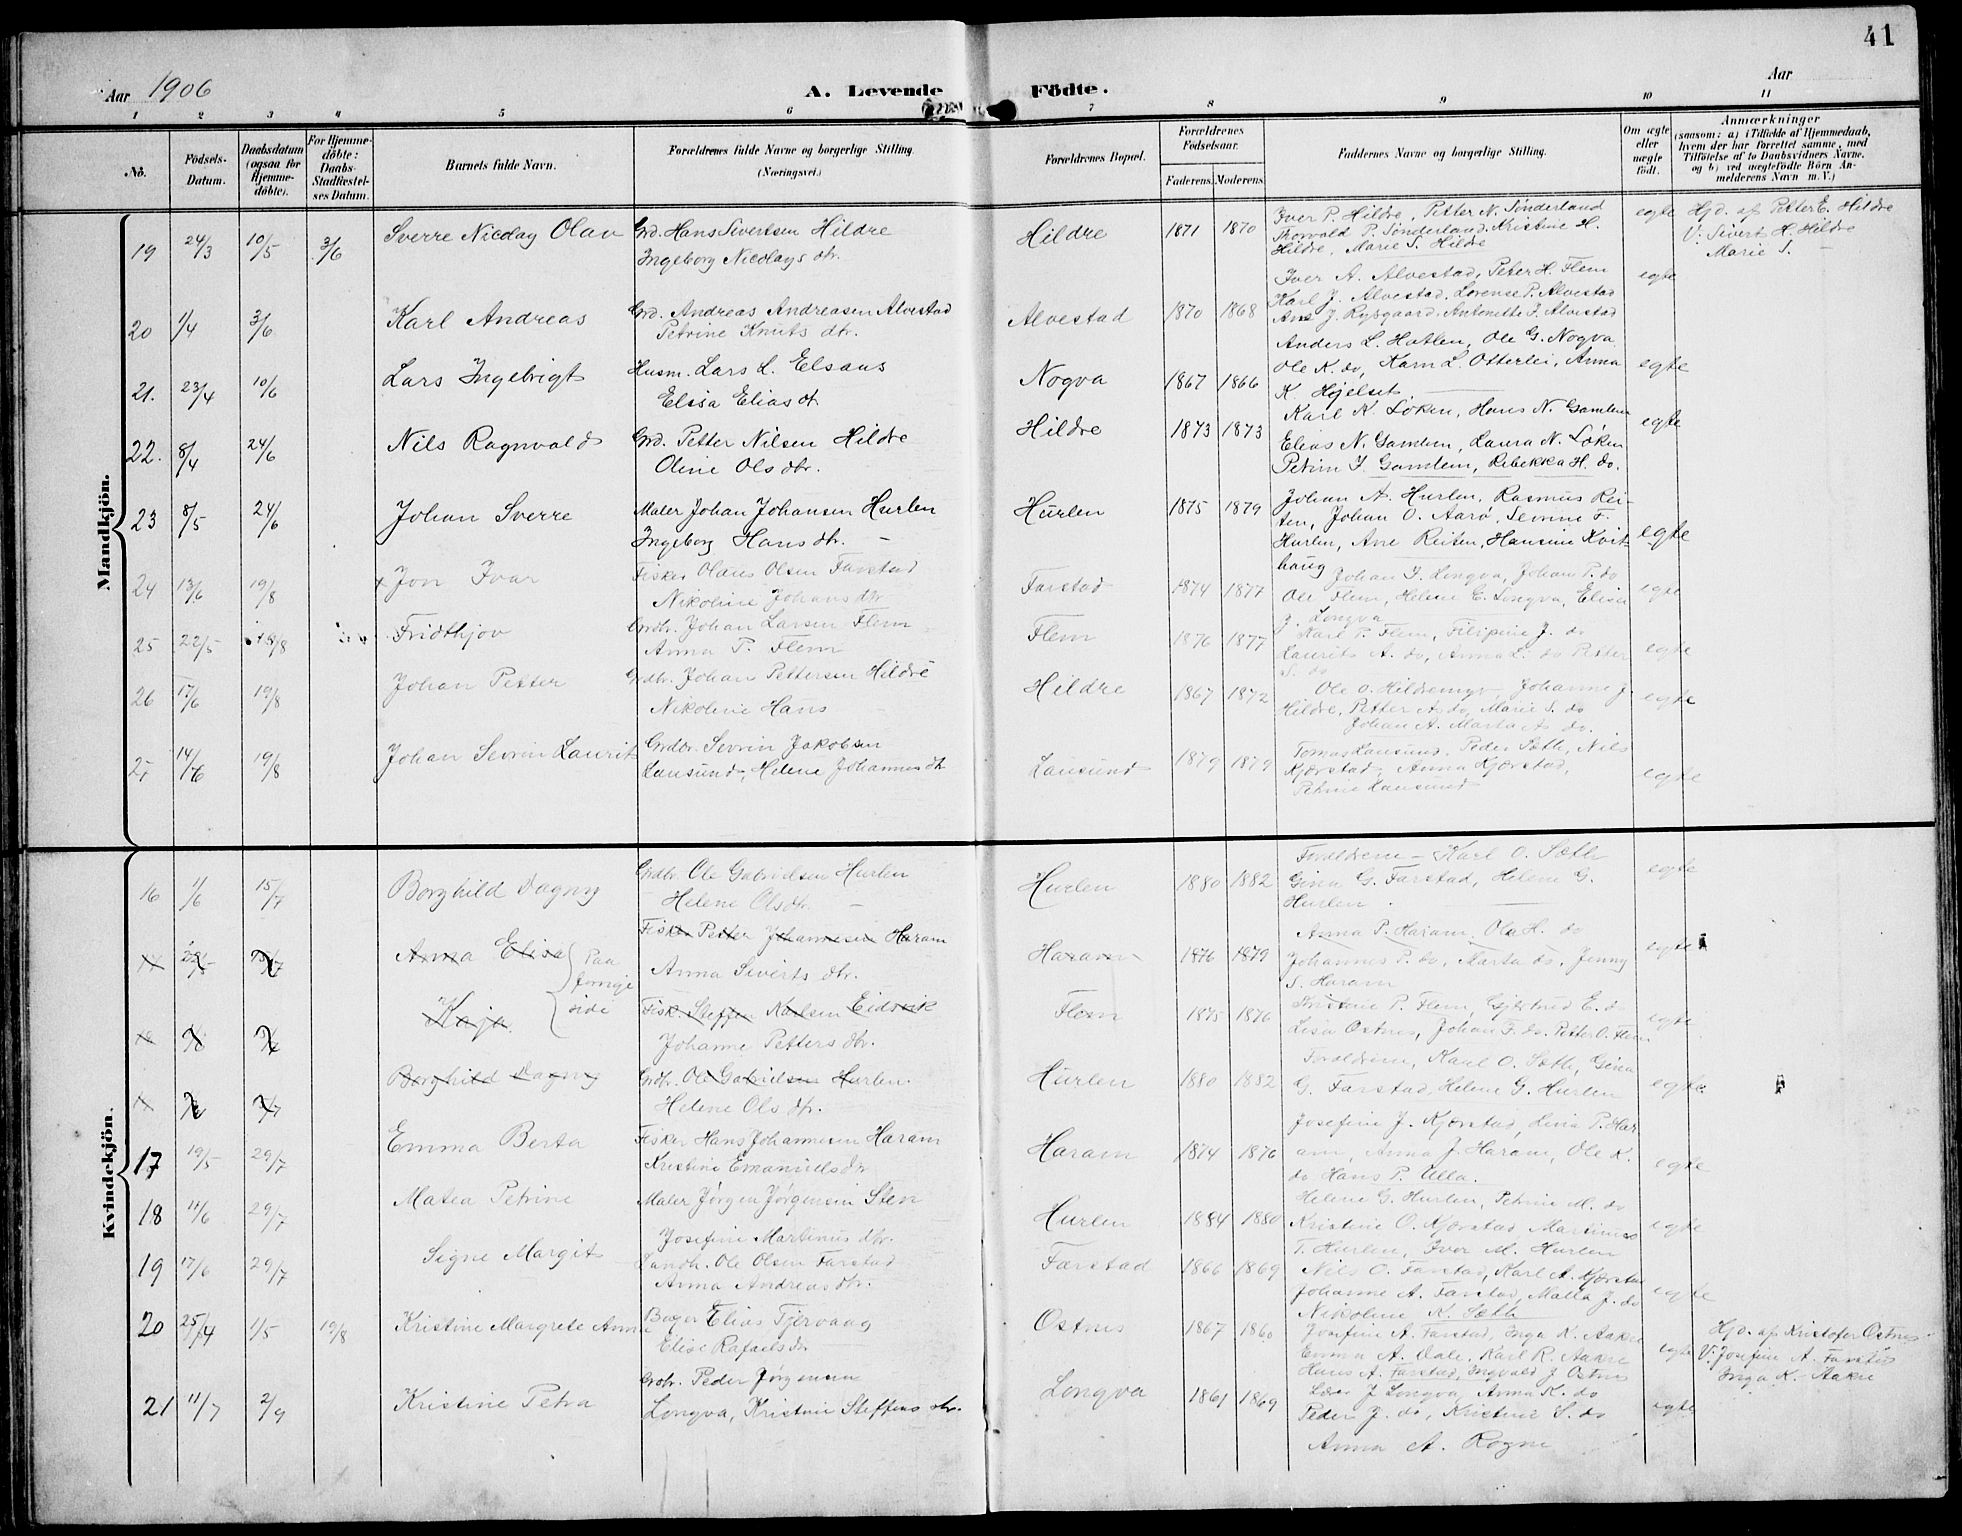 41
Aar 1906 A. Levende Födte. Aar
1 2 3 4 5 6 7 8 9 10 11
No.
Födsels-Datum.
Daabsdatum (ogsaa for Hjemme-döbte).
For Hjemme-döbte: Daabs-Stadfæstel-ses Datum.
Barnets fulde Navn.
Forældrenes fulde Navne og borgerlige Stilling.
(Næringsvei.)
Forældrenes Bopæl.
Forældrenes Födselsaar.
Faderens. Moderens.
Faddernes Navne og borgerlige Stilling.
Om ægte eller uægte födt.
Anmærkninger
(saasom: a) i Tilfælde af Hjemmedaab, hvem der har forrettet samme, med Tilföielse af to Daabsvidners Navne, og b) ved uægtefödte Börn An-melderens Navn m. V.)
Mandkjön.
19 24/3 10/5 3/6 Sverre Nicolay Olav Grd. Hans Sivertsen Hildre Hildre 1871 1870 Iver P. Hildre, Petter N. Sønderland egte Hjd. af Petter E. Hildre
Ingeborg Nicolays dtr. Thorvald P. Sønderland, Kristine H. V: Sivert H. Hildre
Hildre, Marie S. Hildre Marie S. —
20 1/4 3/6 Karl Andreas Grd. Andreas Andreasen Alvestad Alvestad 1870 1868 Iver A. Alvestad, Peter H. Flem egte
Petrine Knuts dtr. Karl J. Alvestad, Lorense P. Alvestad
Ane J. Rypgaard, Antonette J. Alvestad
21. 23/4 10/6 Lars Ingebrigt Husm. Lars L. Elsaus Nogva 1867 1866 Anders L. Hatlen, Ole G. Nogva egte
Elisa Elias dt. Ole K. do, Karn L. Otterlei, Anna
K. Højelset
22. 8/4 24/6 Nils Ragnvald Grd. Petter Nilsen Hildre Hildre 1873 1873 Karl K. Løken, Hans N. Gamlem egte
Oline Ols dtr. Elias N. Gamlem, Laura N. Løken
Petrin J. Gamlem, Rebekka H. do.
23 8/5 24/6 Johan Sverre Maler Johan Johansen Hurlen Hurlen 1875 1879 Johan A. Hurlen, Rasmus Rei- egte
Ingeborg Hans dtr. — ten, Johan O. Aarø, Sevrine F.
Hurlen, Ane Reiten, Hansine Kvit-
haug
24 13/6 19/8 x Jon Ivar Fisker Olaus Olsen Farstad Farstad 1874 1877 Johan J. Longva, Johan P. do egte
Nikoline Johans dtr Ole Flem, Helene E. Longva, Elisa
J. Longva
25 22/5 19/8 Fridthjov Grdbr. Johan Larsen Flem Flem 1876 1877 Karl P. Flem, Filipine J. do egte
Anna P. Flem Laurits A. do, Anna L. do Petter
S. do
26 17/6 19/8 Johan Petter Grdbr. Johan Pettersen Hildre Hildre 1867 1872 Ole O. Hildremyr, Johanne J. egte
Nikoline Hans Hildre, Petter A. do, Marie S. do
Johan A. Marta A. do.
27 14/6 19/8 Johan Sevrin Laurits Grdbr. Sevrin Jakobsen Lausund 1879 1879 Tomas Lausund, Peder Sæth, Nils egte
Lausund, Helene Johannes dtr Kjærstad, Anna Kjærstad,
Petrine Lausund
Kvindekjön.
16 1/6 15/7 Borghild Dagny Grdbr. Ole Gabrielsen Hurlen Hurlen 1880 1882 Forældrene — Karl O. Sæth egte
Helene Ols dtr. — Gina G. Farstad, Helene G.
Hurlen.
Anna Elisa Paa forrige side Fisker Petter Johannesen Haram Haram 1876 1879 Anna P. Haram, Ola H. do egte
Anna Siverts dtr. Johannes P. do, Marta do, Jenny
S. Haram
Kaja Fisk. Steffen Karlsen Eidsvik Flem 1875 1876 Kristine P. Flem, Gjertrud E. do egte
Johanne Petters dtr. Lisa Ostnes, Johan F. do. Petter O. Flem
Borghild Dagny Grdbr. Ole Gabrielsen Hurlen. Hurlen 1880 1882 Forældrene, Karl O. Sæth, Gina egte
Helene Ols dtr. G. Farstad, Helene G. Hurlen
17 19/5 29/7 Emma Berta Fisker Hans Johannesen Haram Haram 1874 1876 Josefine J. Kjærstad, Lina P. Har egte
Kristine Emanuels dtr am, Anna J. Haram, Ole K.
do Hans P. Ulla.
18 11/6 29/7 Matea Petrine Maler Jørgen Jørgensen Sten Hurlen 1884 1880 Helene G. Hurlen, Petrine M. do egte
Josefine Martinus dtr. Kristine O. Kjærstad Martinus
T. Hurlen, Iver M. Hurlen
19 17/6 29/7 Signe Margit Landh. Ole Olsen Farstad Farstad 1866 1869 Nils O. Farstad, Karl A. Kjærstad egte
Anna Andreas dtr. Johanne A. Farstad, Malla J. do
Nikoline K. Sæth
20 25/4 1/5 19/8 Kristine Margrete Anna Bager Elias Tjervaag Ostnes 1867 1860 Josefine A. Farstad, Inga K. Aakre egte Hjd. af Kristofer Ostnes
Elise Rafaels dtr Emma A. Dale, Karl R. Aakre V: Josefine A. Farstad
Hans A. Farstad, Ingvald J. Ostnes Inga K. Aakre
21 11/7 2/9 Kristine Petra Grdbr. Peder Jørgensen Longva 1861 1869 Lars J. Longva, Anna K. do egte
Longva, Kristine Steffens dtr. Peder J. do, Kristine S. do
Anna A. Rogne